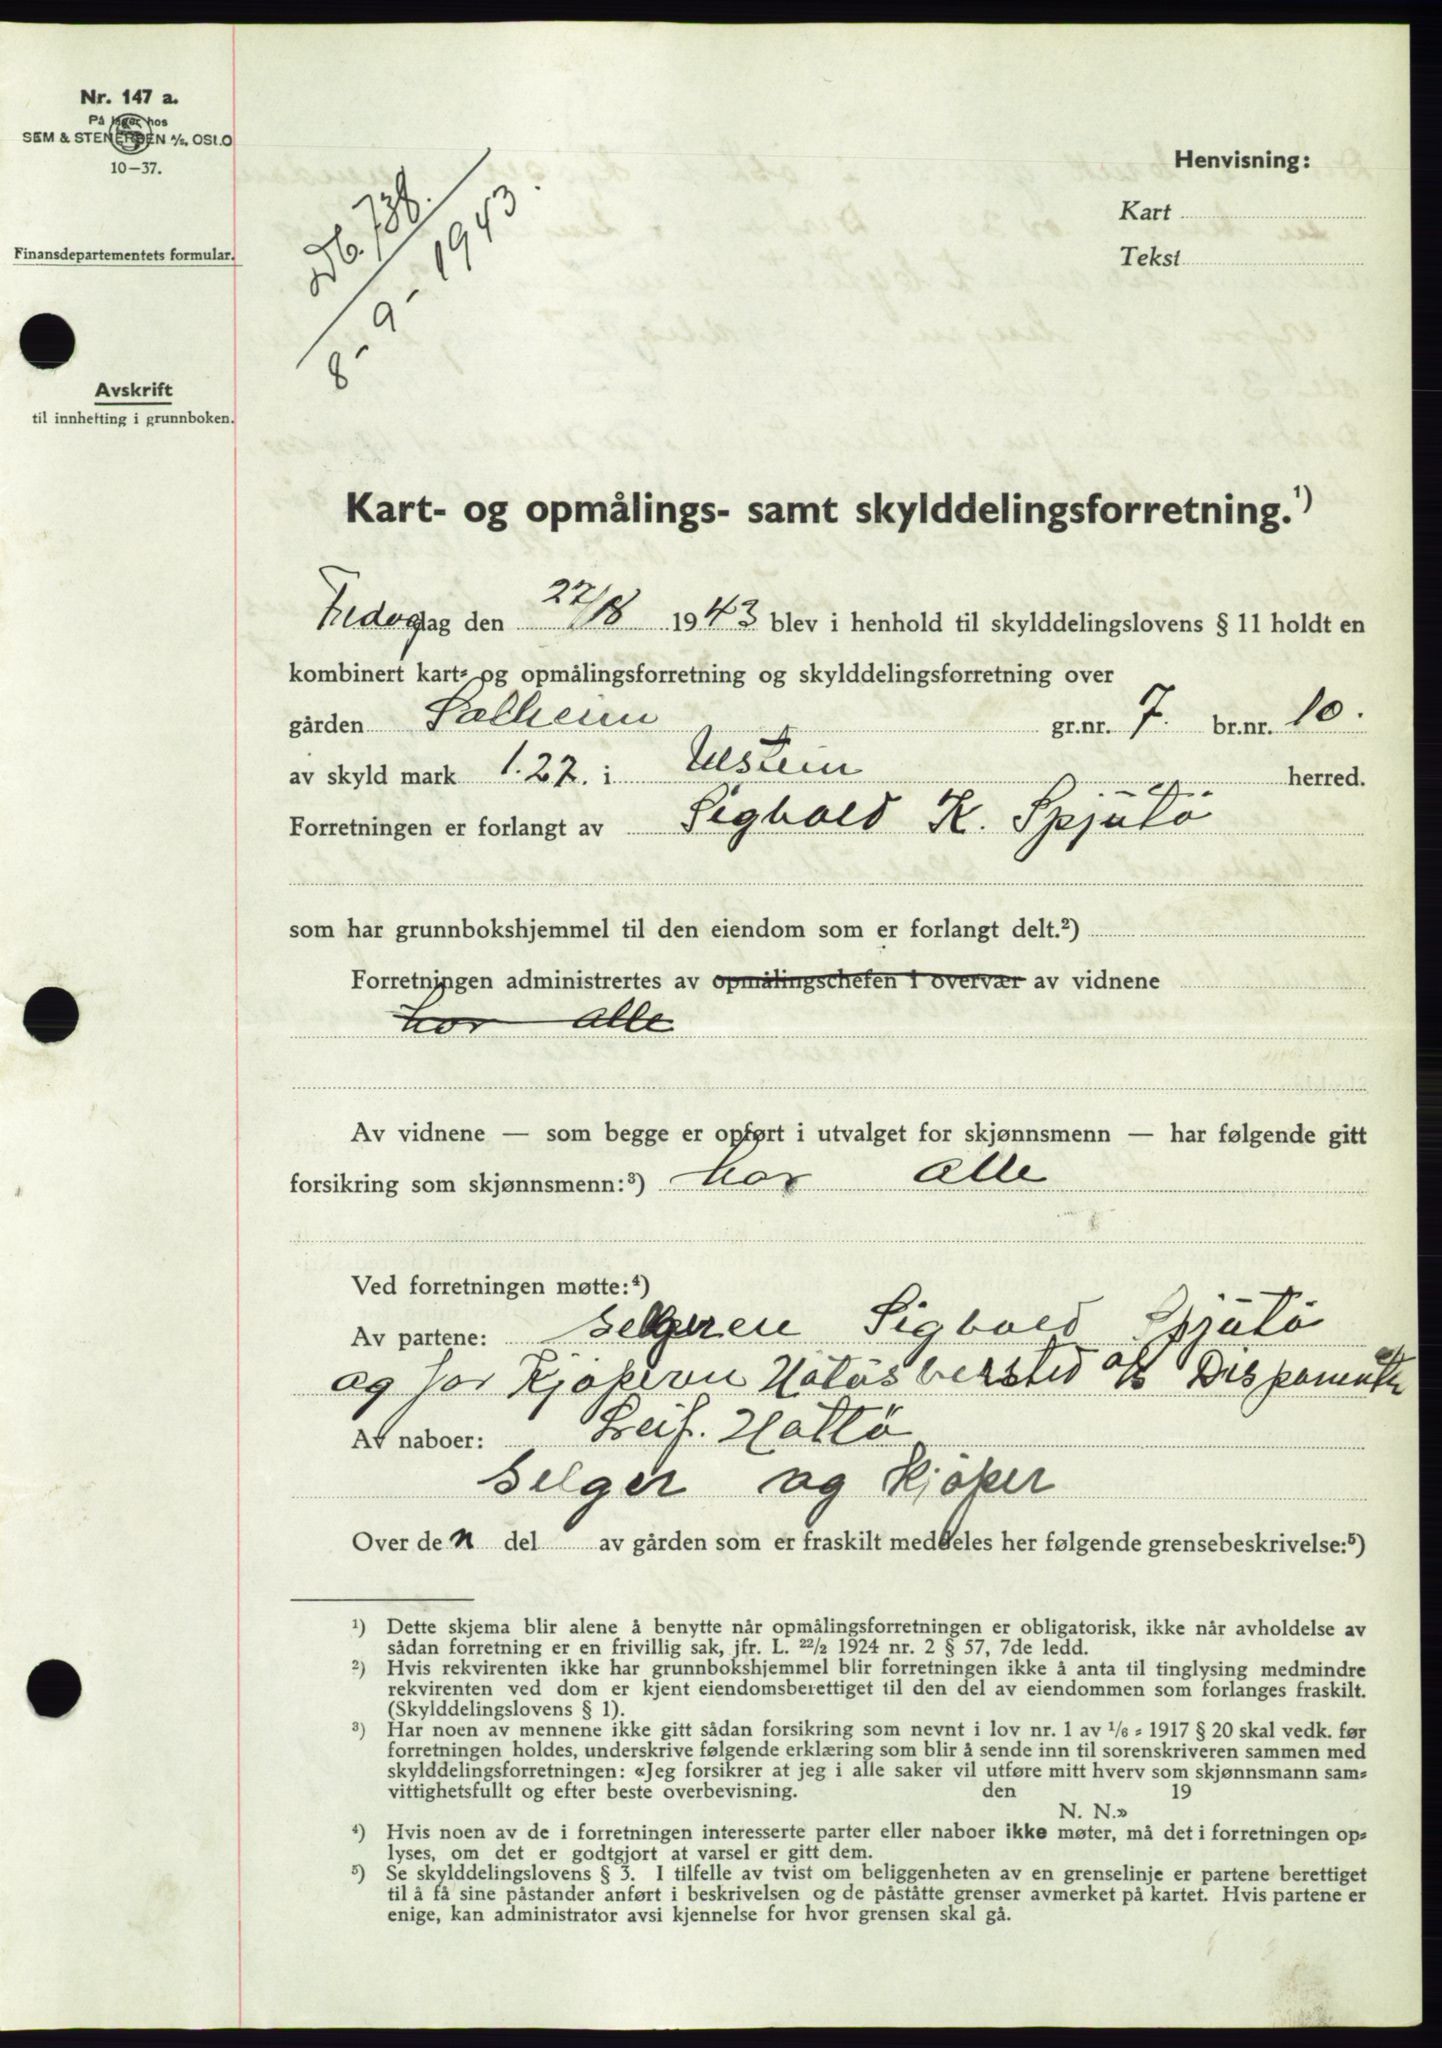 Nr. 147 a.
På lager hos
SEM & STENERSEN A/S, OSLO
10-37.
Finansdepartementets formular.
Avskrift
til innhefting i grunnboken.
Db. 738.
8-9-1943.
Henvisning:
Kart
Tekst
Kart- og opmålings- samt skylddelingsforretning.¹)
Fredag dag den 27/8 1943 blev i henhold til skylddelingslovens § 11 holdt en
kombinert kart- og opmålingsforretning og skylddelingsforretning over
gården Solheim gr.nr. 7. br.nr. 10.
av skyld mark 1.27. i Ulstein herred.
Forretningen er forlangt av Sigbald K. Spjutø
som har grunnbokshjemmel til den eiendom som er forlangt delt.²)
Forretningen administrertes av opmålingschefen i overvær av vidnene
har alle
Av vidnene — som begge er opført i utvalget for skjønnsmenn — har følgende gitt
forsikring som skjønnsmenn:³) har alle
Ved forretningen møtte:⁴)
Av partene: selgeren Sigbald Spjutø
og for Kjøperen Hatløs A/S
Av naboer: Leif. Hatlø
selger og kjøper
Over den del av gården som er fraskilt meddeles her følgende grensebeskrivelse:⁵)
¹) Dette skjema blir alene å benytte når opmålingsforretningen er obligatorisk, ikke når avholdelse av
sådan forretning er en frivillig sak, jfr. L. 22/2 1924 nr. 2 § 57, 7de ledd.
²) Hvis rekvirenten ikke har grunnbokshjemmel blir forretningen ikke å anta til tinglysing medmindre
rekvirenten ved dom er kjent eiendomsberettiget til den del av eiendommen som forlanges fraskilt.
(Skylddelingslovens § 1).
³) Har noen av mennene ikke gitt sådan forsikring som nevnt i lov nr. 1 av 1/6 - 1917 § 20 skal vedk. før
forretningen holdes, underskrive følgende erklæring som blir å sende inn til sorenskriveren sammen med
skylddelingsforretningen: «Jeg forsikrer at jeg i alle saker vil utføre mitt hverv som skjønnsmann sam-
vittighetsfullt og efter beste overbevisning. den 19
N. N.»
⁴) Hvis noen av de i forretningen interesserte parter eller naboer ikke møter, må det i forretningen op-
lyses, om det er godtgjort at varsel er gitt dem.
⁵) Se skylddelingslovens § 3. I tilfelle av tvist om beliggenheten av en grenselinje er partene berettiget
til å få sine påstander anført i beskrivelsen og de påståtte grenser avmerket på kartet. Hvis partene er
enige, kan administrator avsi kjennelse for hvor grensen skal gå.